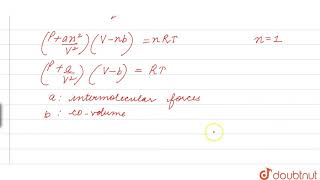 (P + an²/V²) (V - nb) = nRT    n = 1
(P + a/V²) (V - b) = RT
a : intermolecular forces
b : co-volume
doubtnut